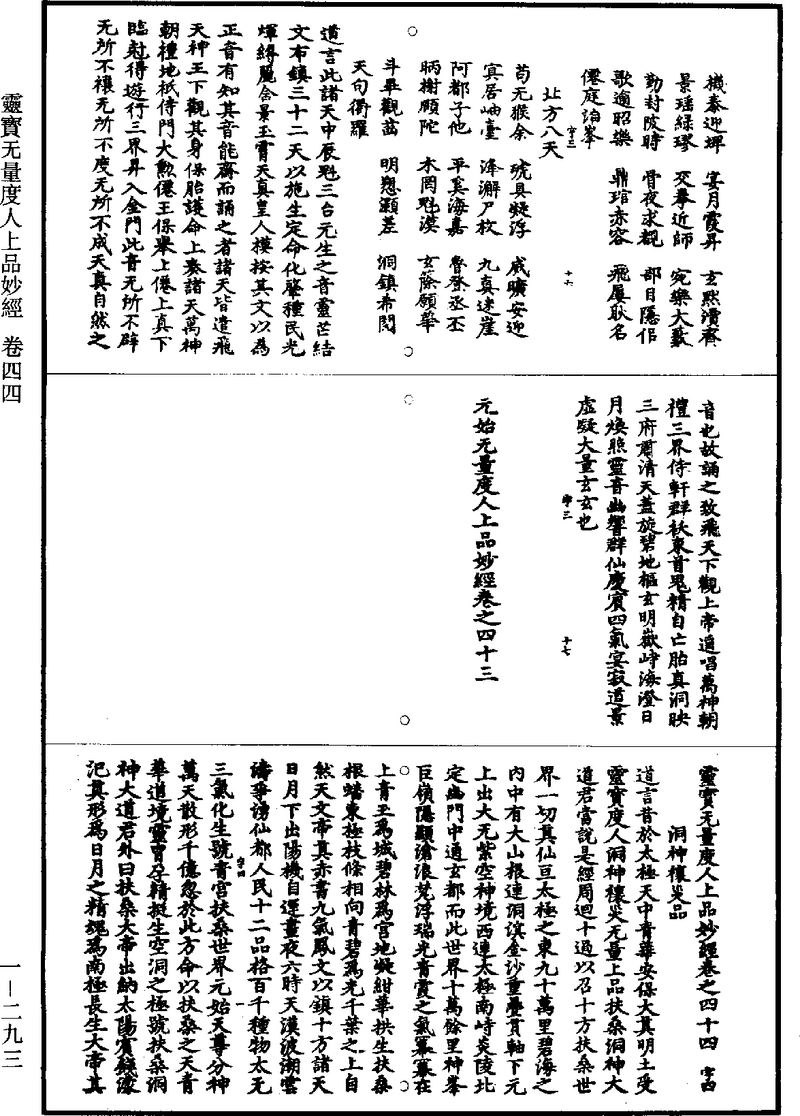 靈寶无量度人上品妙經 卷四四
一—二九三
機泰迎墀 宴月霞昇 玄默清齋
景瑤綠璆 交攀近師 宛樂大藪
勤封陂時 骨夜求觀 部目隱侶
歌逾昭樂 鼎琯赤容 飛屢耿名
僊庭治峯
字三
北方八天
十六
荀无猴余 琥具凝浮 威曠安迎
㝠居岫臺 浲澥尸枚 九真迷崖
阿都子他 平奚海嘉 魯登丞丕
昞榭願陀 木罔魁漠 玄蔭願華
斗畢觀菑 明懇灝差 洞鎮希閔
天句衢羅
道言此諸天中辰魁三台元生之音靈芒結
文布鎮三十二天以施生定命化肇種民光
煇縟麗含景玉霄天真皇人模按其文以為
正音有知其音能齋而誦之者諸天皆遣飛
天神王下觀其身保胎護命上奏諸天萬神
朝禮地祇侍門大勲僊王保舉上僊上真下
臨尅得遊行三界昇入金門此音无所不辟
无所不禳无所不度无所不成天真自然之
音也故誦之致飛天下觀上帝遥唱萬神朝
禮三界侍軒群妖束首鬼精自亡胎真洞映
三府肅清天蓋旋碧地樞玄明嶽峙海澄日
月煥照靈音幽響群仙慶賓四氣宴寂道景
虛凝大量玄玄也
字三
十七
元始无量度人上品妙經卷之四十三
靈寶无量度人上品妙經卷之四十四 字四
洞神禳災品
道言昔於太極天中青華安保大真明土受
靈寶度人洞神禳災无量上品扶桑洞神大
道君當說是經周迴十過以召十方扶桑世
界一切真仙亘太極之東九十萬里碧海之
內中有大山根連洞溟金沙重疊貫軸下元
上出大无紫空神境西連太極南峙炎陵北
定幽門中通玄都而此世界十萬餘里神峯
巨嶺隱顯滄浪梵浮瑞光青蒼之氣羃羃在
上青玉為城碧林為宮地凝紺華拱生扶桑
根蟠東極枝條相向青碧為光千葉之上自
然天文帝真赤書九氣鳳文以鎮十方諸天
日月下出陽機自運晝夜六時天漢波潮雲
濤爭湧仙都人民十二品格百千種物太无
字四
一
三氣化生號青宮扶桑世界元始天尊分神
萬天散形千億忽於此方命以扶桑之天青
華道境靈胄孕精挺生空洞之極號扶桑洞
神大道君外曰扶桑大帝出納太陽賓餞濛
汜真形為日月之精經為南極長生大帝其